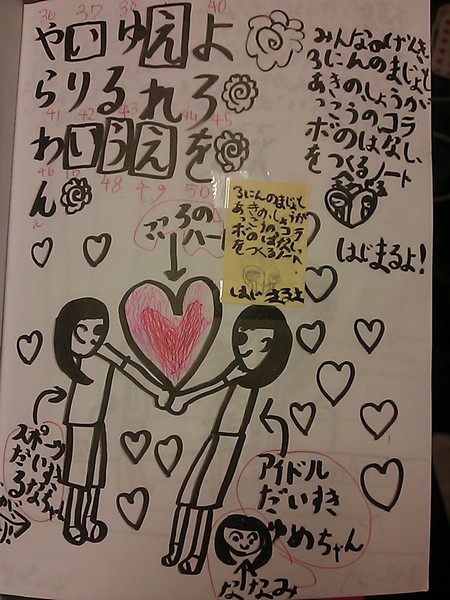 36 37 38 40
やいゆえよ
らりるれろ
41 42 43 44 45
わいうえを
46 48 49 50
ん
みんなのげんき、
3にんのまじょと
あきのしょうが
っこうのコラ
ボのはなし、
をつくるノート
はじまるよ！
3にんのまじょと
あきのしょうが
っこうのコラ
ボのはなし、
をつくるノート
はじまるよ
こころの
ハート
スポーツ
だいすき
るなちゃん
アイドル
だいすき
ゆめちゃん
ななみ